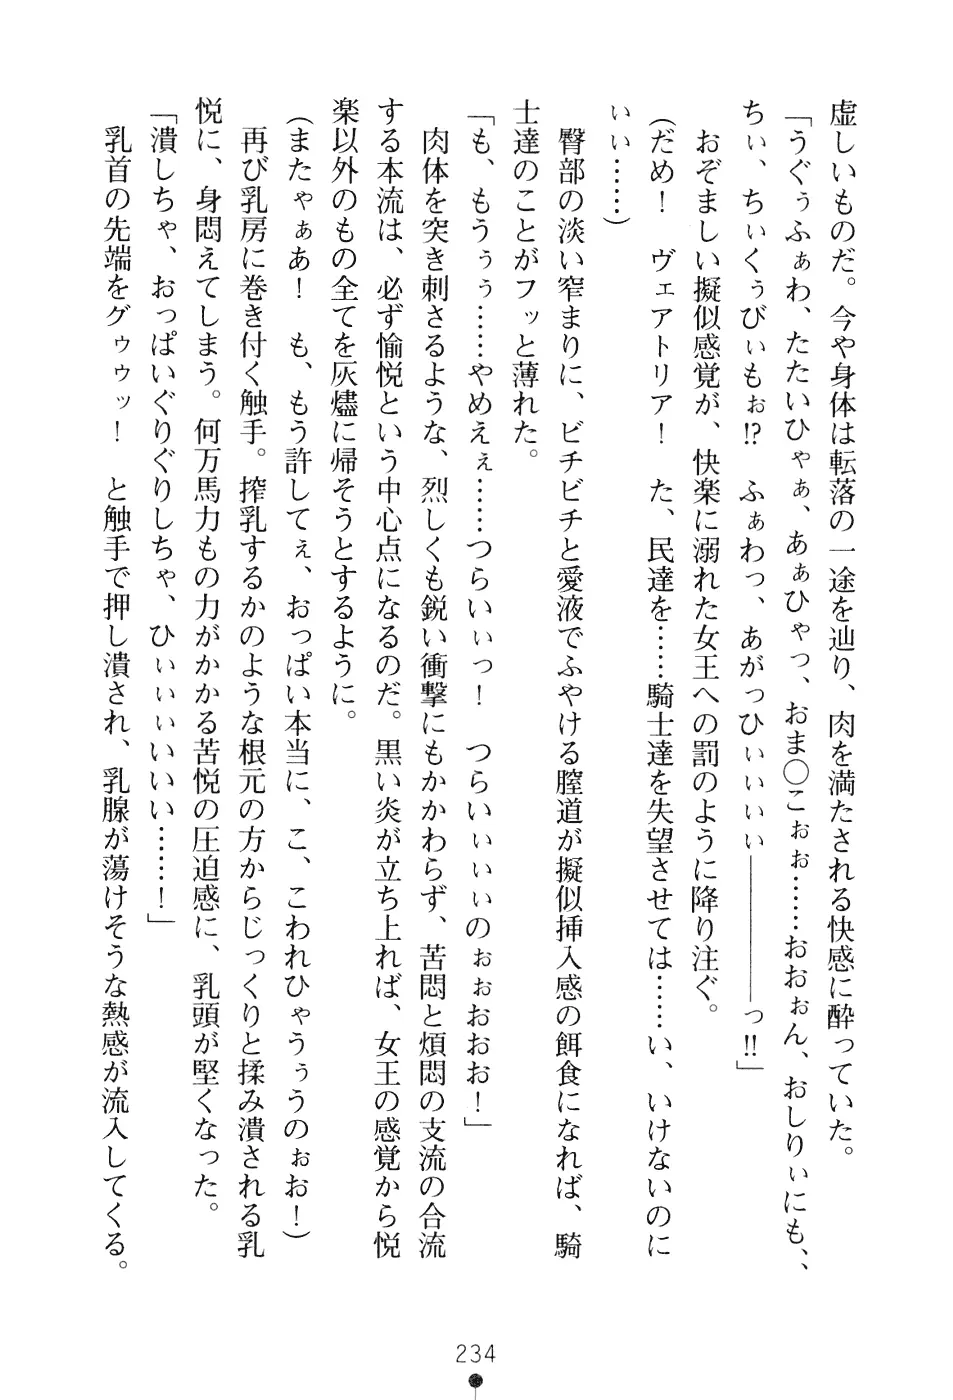 虚しいものだ。今や身体は転落の一途を辿り、肉を満たされる快感に酔っていた。
「うぐぅふぁわ、たたいひゃぁ、あぁひゃっ、おま○こぉぉ……おおぉん、おしりぃにも、、
ちぃ、ちぃくぅびぃもぉ!?　ふぁわっ、あがっひぃぃぃぃ――――――っ!!」
おぞましい擬似感覚が、快楽に溺れた女王への罰のように降り注ぐ。
(だめ！　ヴェアトリア！　た、民達を……騎士達を失望させては……い、いけないのに
ぃぃ……)
臀部の淡い窄まりに、ビチビチと愛液でふやける膣道が擬似挿入感の餌食になれば、騎
士達のことがフッと薄れた。
「も、もうぅぅ……やめえぇ……つらいぃっ！　つらいぃぃぃのぉぉおおお！」
肉体を突き刺さるような、烈しくも鋭い衝撃にもかかわらず、苦悶と煩悶の支流の合流
する本流は、必ず愉悦という中心点になるのだ。黒い炎が立ち上れば、女王の感覚から悦
楽以外のもの全てを灰燼に帰そうとするように。
(またゃぁあ！　も、もう許してぇ、おっぱい本当に、こ、こわれひゃうぅうのぉお！)
再び乳房に巻き付く触手。搾乳するかのような根元の方からじっくりと揉み潰される乳
悦に、身悶えてしまう。何万馬力もの力がかかる苦悦の圧迫感に、乳頭が堅くなった。
「潰しちゃ、おっぱいぐりぐりしちゃ、ひぃぃぃいいい……！」
乳首の先端をグゥゥッ！　と触手で押し潰され、乳腺が蕩けそうな熱感が流入してくる。
234